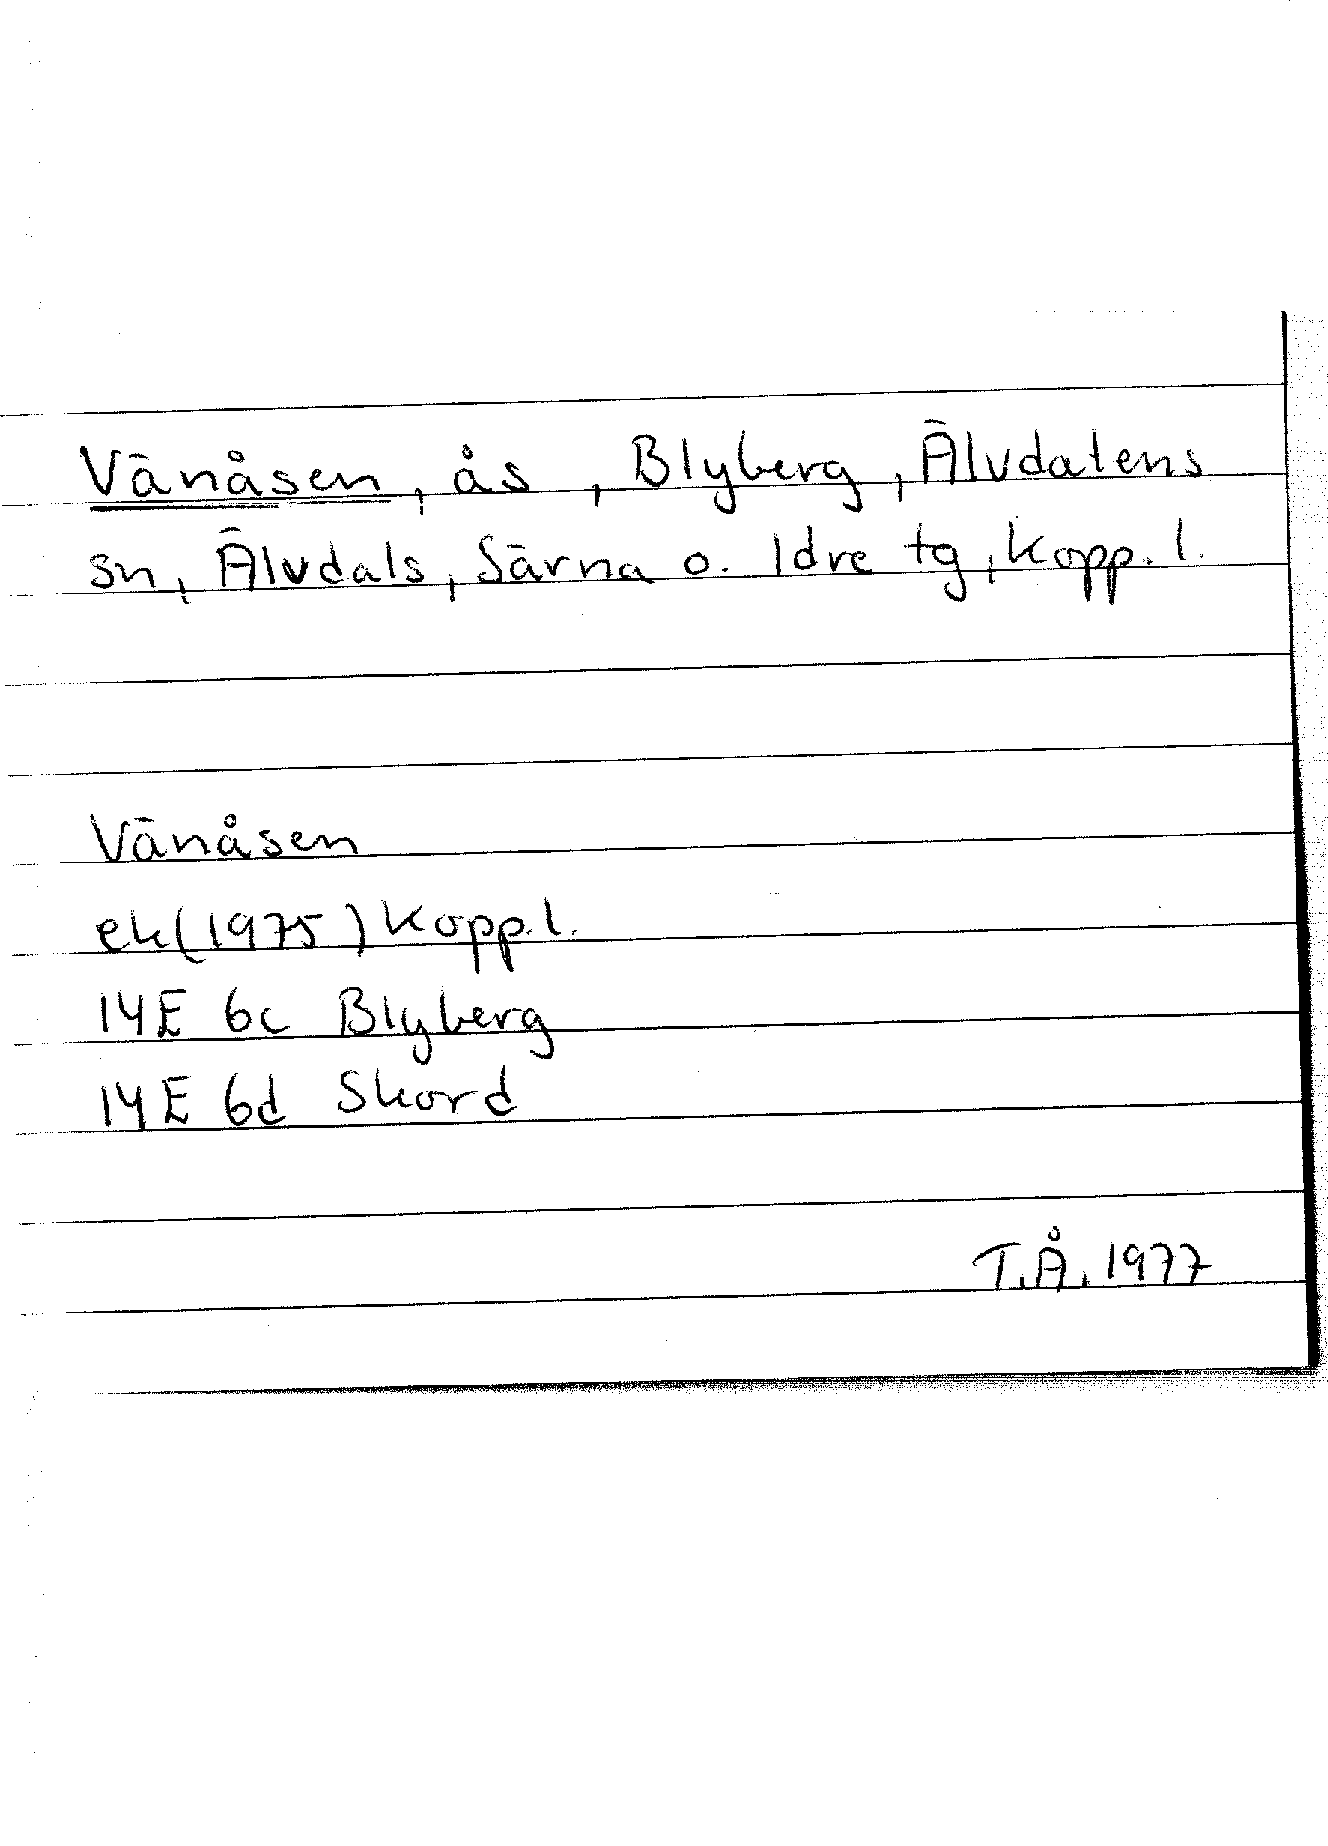 Vänåsen, ås, Blyberg, Älvdalens
sn, Älvdals, Särna o. Idre tg, Kopp. l.
Vänåsen
ek (1975) Kopp.l.
14E 6c Blyberg
14E 6d Skord
T.Å. 1977